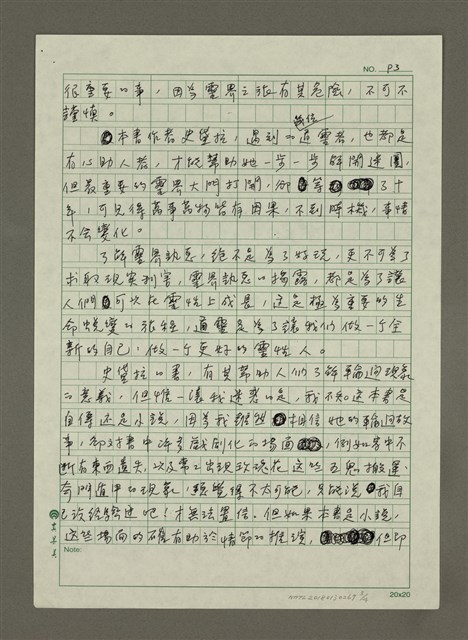 NO. P3
很重要的事，因為靈界之旅有其危險，不可不
謹慎。
每位
本書作者史黛拉，遇到的通靈者，也都是
有心助人者，才能幫助她一步一步解開迷團，
但最重要的靈界大門打開，卻等了十
年，可見得萬事萬物皆有因果，不到時機，事情
不會變化。
了解靈界訊息，絕不是為了好玩，更不可為了
求取現實利害，靈界訊息的揭露，都是為了讓
人們可以在靈性上成長，這是極為重要的生
命蛻變的旅程，通靈是為了讓我們做一個全
新的自己，做一個更好的靈性人。
史黛拉的書，有其幫助人們了解輪迴現象
的意義，但惟一讓我迷惑的是，我不知這本書是
自傳還是小說，因為我雖然相信她的輪迴故
事，卻對書中許多戲劇化的場面，例如書中不
斷有東西遺失，以及常出現玫瑰花這些五鬼搬運、
奇門遁甲的現象，總覺得不太可能，只能說我自
己沒經驗過吧！才無法置信。但如果本書是小說，
這些場面的確有助於情節的推演，但即
Note:
20x20